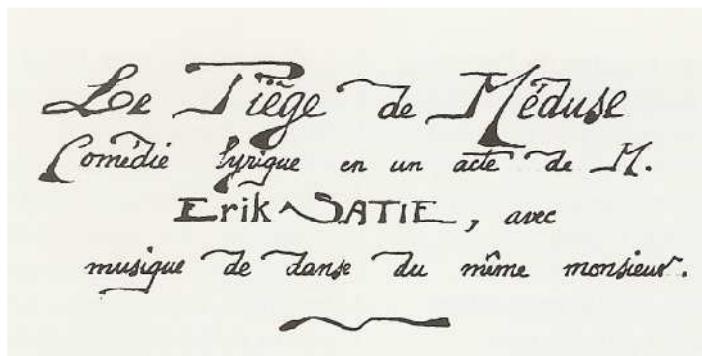 Le Piège de Méduse
Comédie lyrique en un acte de M.
Erik SATIE, avec
musique de danse du même monsieur.